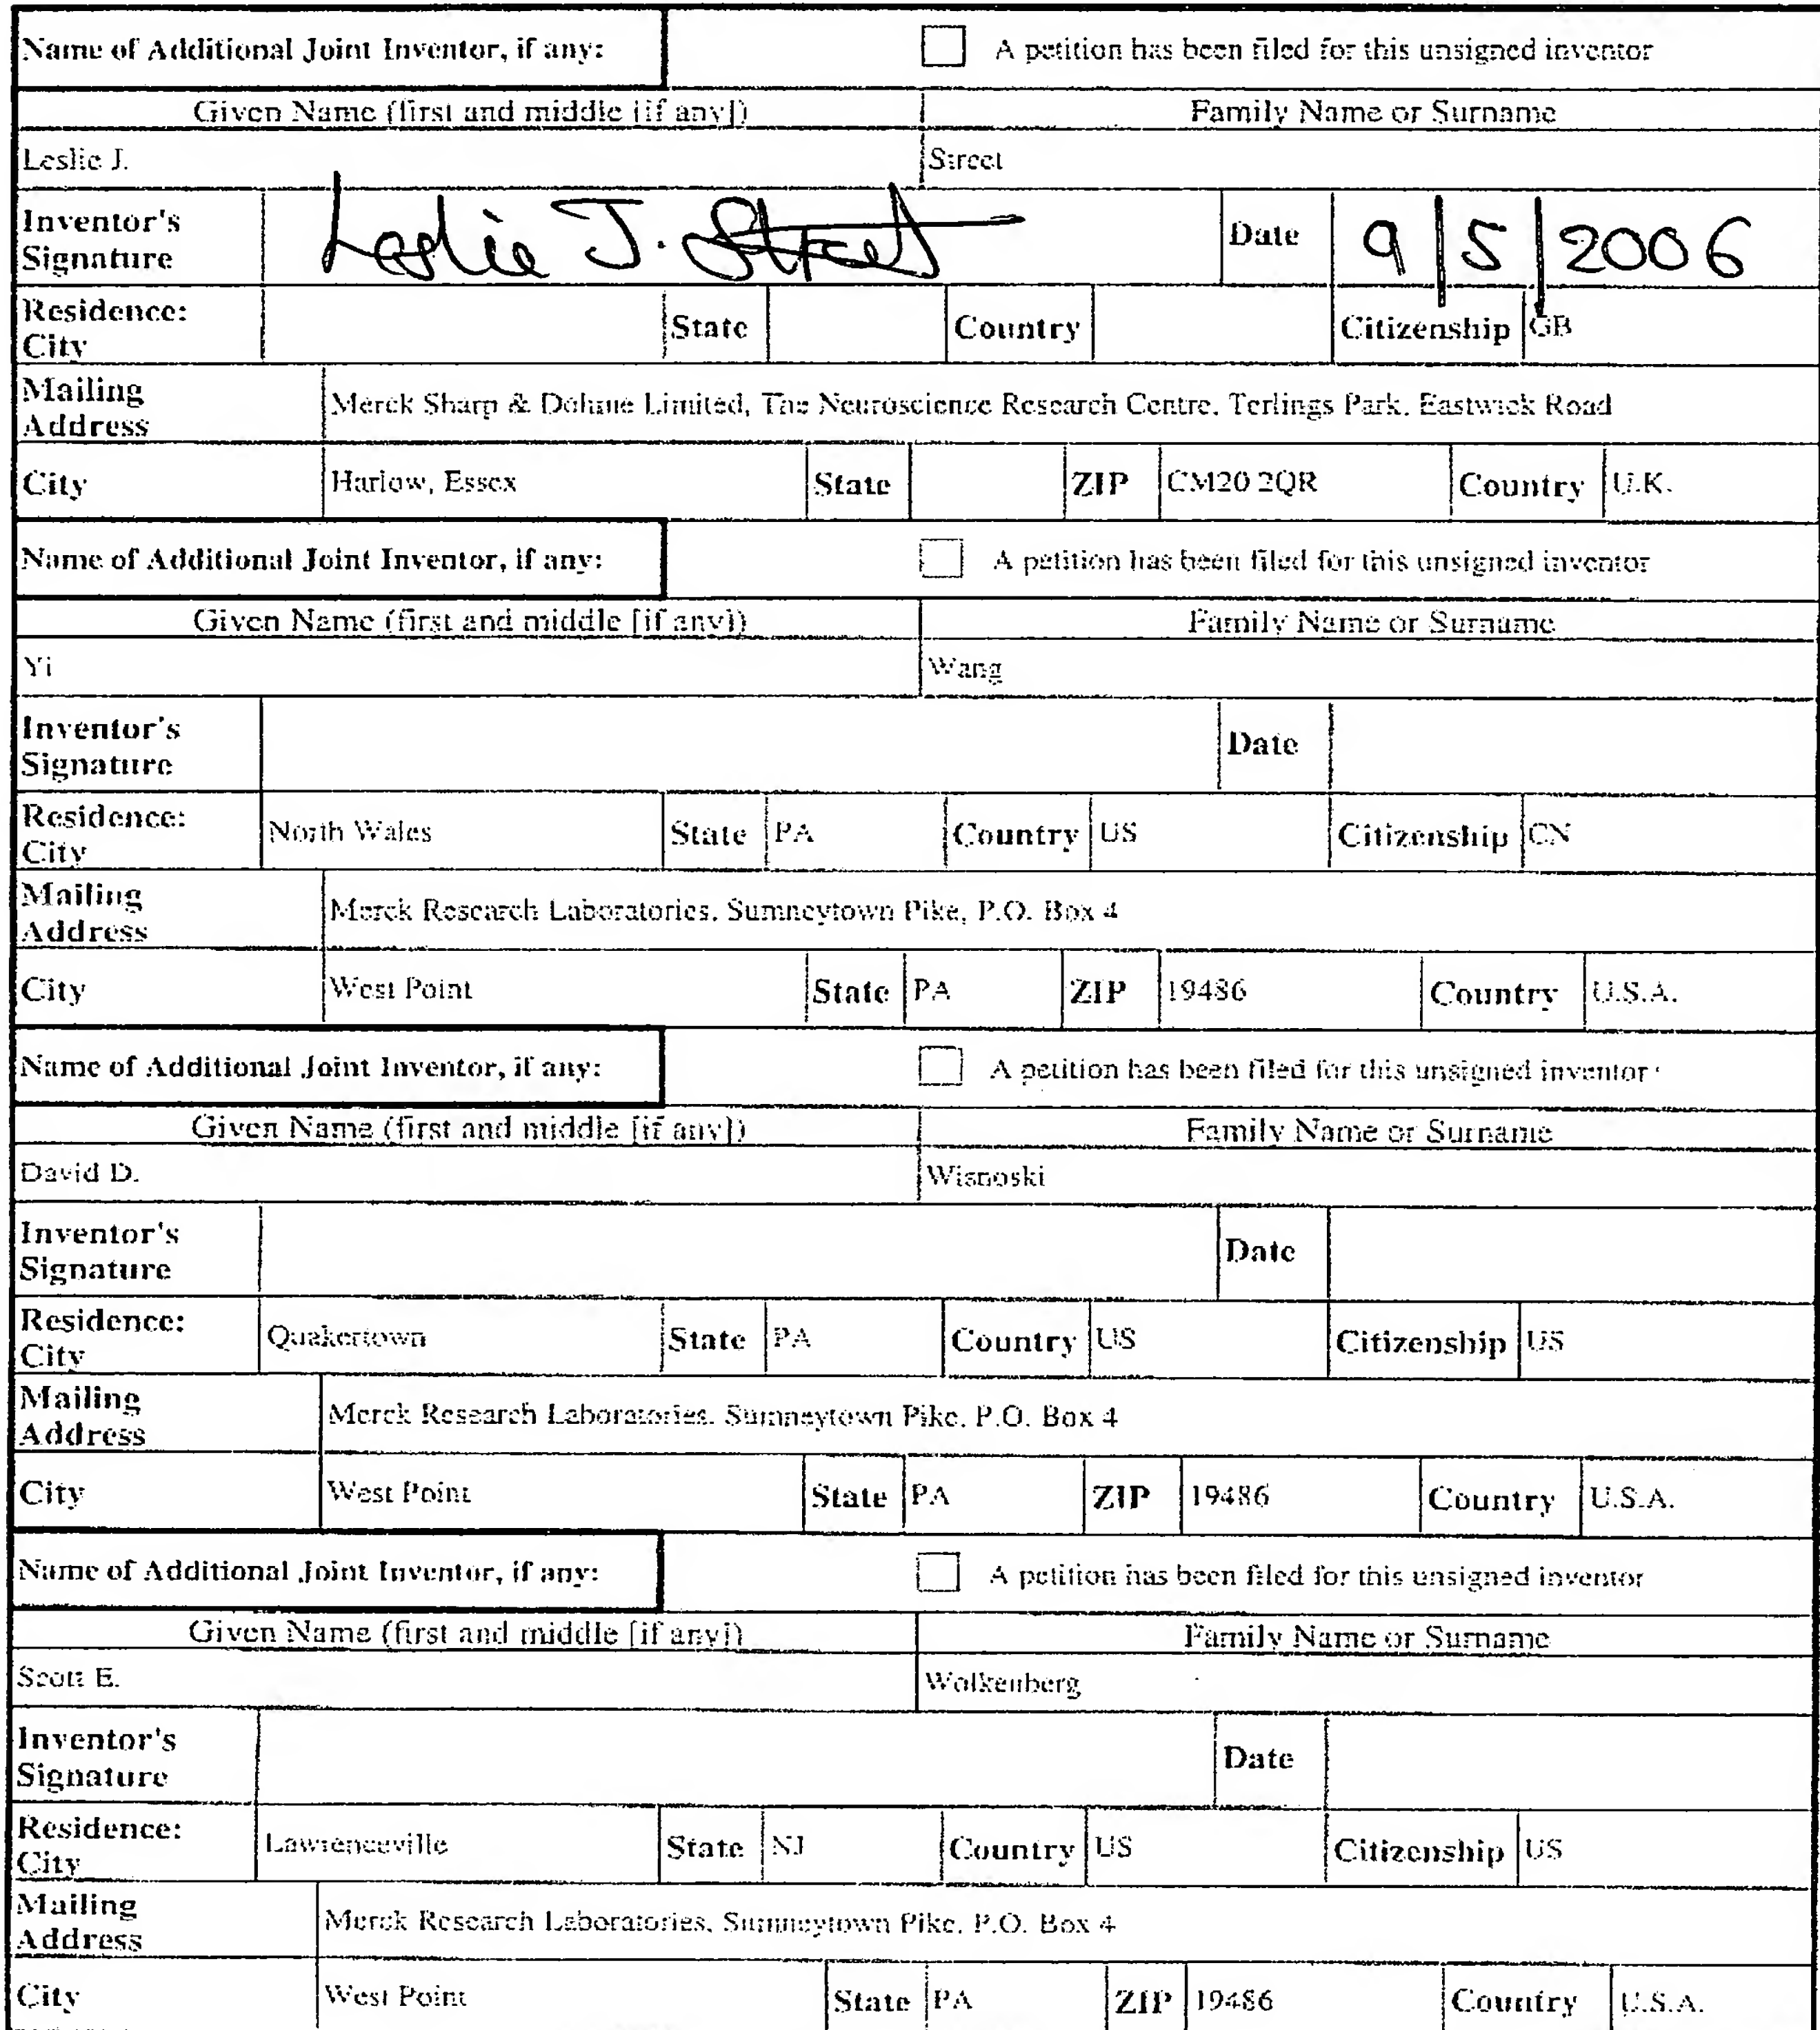 Name of Additional Joint Inventor, if any: A petition has been filed for this unsigned inventor
Given Name (first and middle [if any]) Family Name or Surname
Leslie J. Street
Inventor's Signature Leslie J. Street Date 9/5/2006
Residence: City State Country Citizenship GB
Mailing Address Merck Sharp & Dohme Limited, The Neuroscience Research Centre, Terlings Park, Eastwick Road
City Harlow, Essex State ZIP CM20 2QR Country U.K.
Name of Additional Joint Inventor, if any: A petition has been filed for this unsigned inventor
Given Name (first and middle [if any]) Family Name or Surname
Yi Wang
Inventor's Signature Date
Residence: City North Wales State PA Country US Citizenship CN
Mailing Address Merck Research Laboratories, Sumneytown Pike, P.O. Box 4
City West Point State PA ZIP 19486 Country U.S.A.
Name of Additional Joint Inventor, if any: A petition has been filed for this unsigned inventor
Given Name (first and middle [if any]) Family Name or Surname
David D. Wisnoski
Inventor's Signature Date
Residence: City Quakertown State PA Country US Citizenship US
Mailing Address Merck Research Laboratories, Sumneytown Pike, P.O. Box 4
City West Point State PA ZIP 19486 Country U.S.A.
Name of Additional Joint Inventor, if any: A petition has been filed for this unsigned inventor
Given Name (first and middle [if any]) Family Name or Surname
Scott E. Wolkenberg
Inventor's Signature Date
Residence: City Lawrenceville State NJ Country US Citizenship US
Mailing Address Merck Research Laboratories, Sumneytown Pike, P.O. Box 4
City West Point State PA ZIP 19486 Country U.S.A.